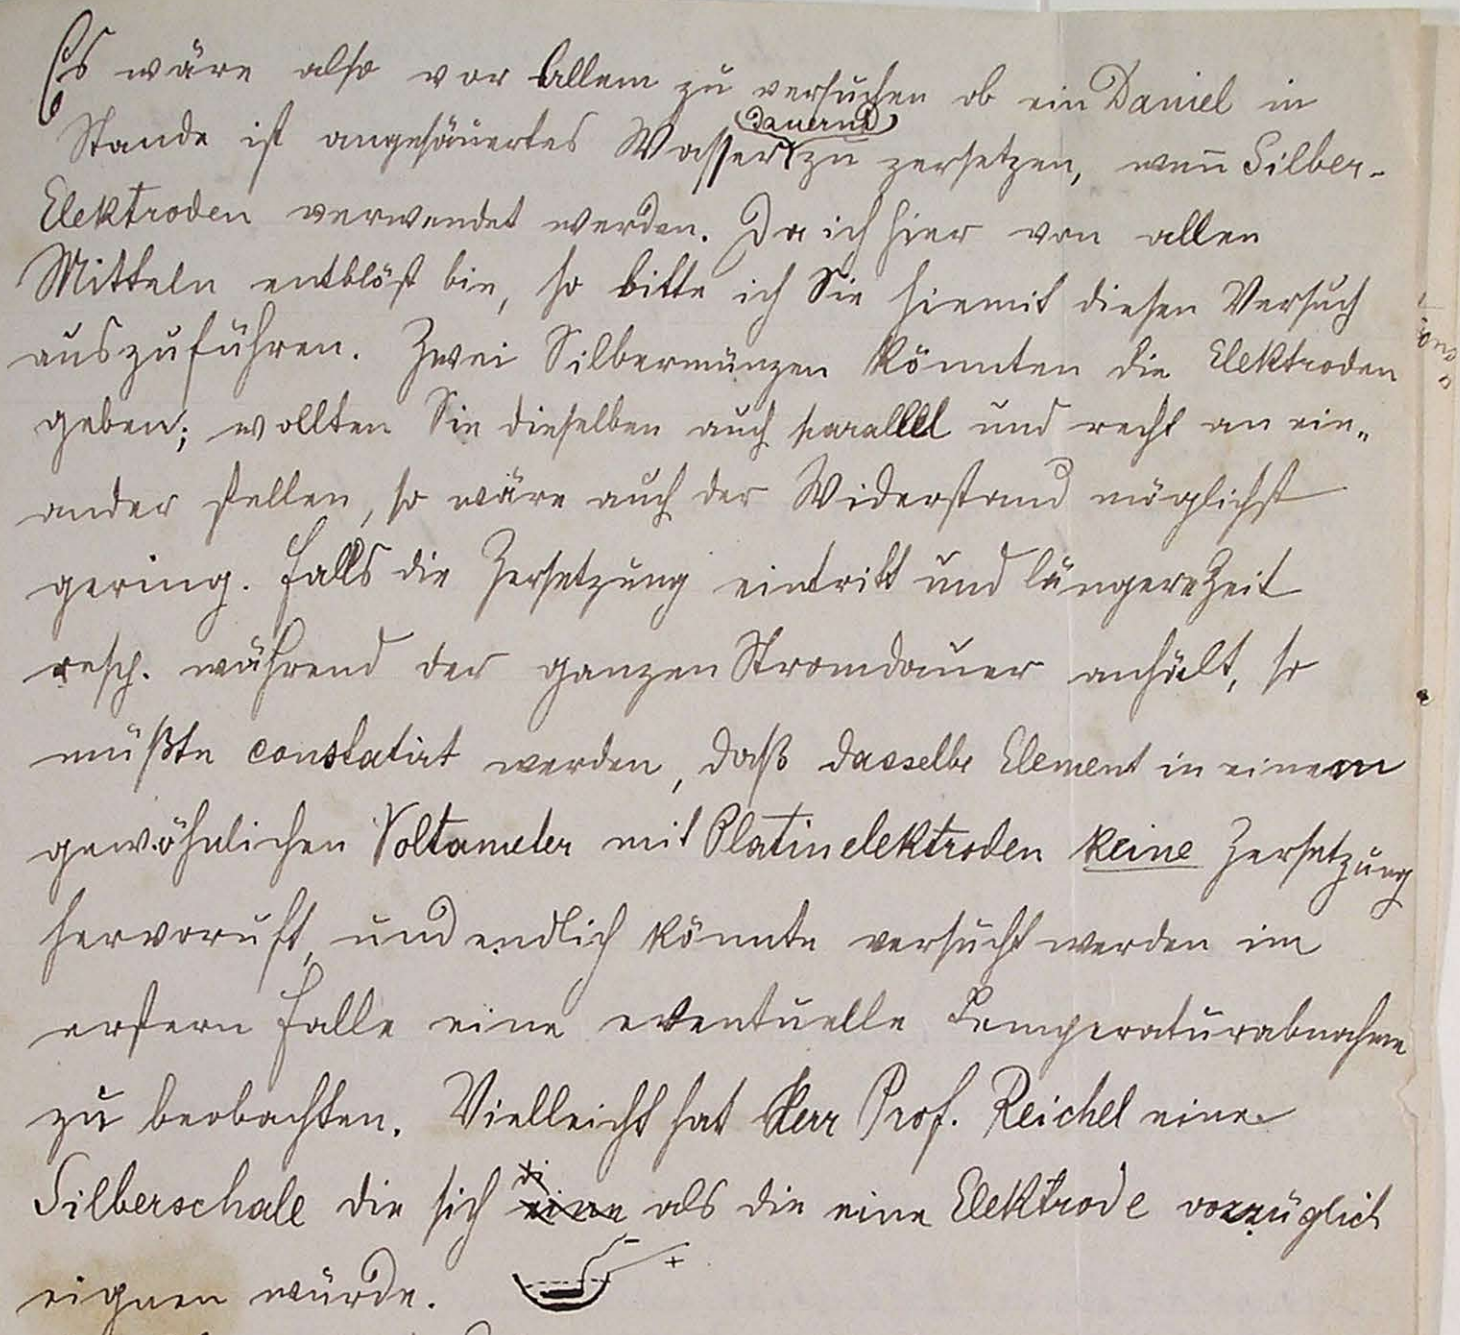 Es wäre also vor Allem zu versuchen ob ein Daniel in
Stande ist angesäuertes Wasser (dauernd) zu zersetzen, weñ Silber-
Elektroden verwendet werden. Da ich hier von allen
Mitteln entblöst bin, so bitte ich Sie hiemit diesen Versuch
auszuführen. Zwei Silbermünzen könnten die Elektroden
geben; wollten Sie dieselben auch parallel und recht an ein-
ander stellen, so wäre auch der Widerstand möglichst
gering. Falls die Zersetzung eintritt und längere Zeit
resp. während der ganzen Stromdauer anhält, so
müßte constatirt werden, daß dasselbe Element in einem
gewöhnlichen Voltameter mit Platinelektroden keine Zersetzung
hervoruft, und endlich könnte versucht werden im
erstern Falle eine eventuelle Temperaturabnahme
zu beobachten. Vielleicht hat Herr Prof. Reichel eine
Silberschale die sich eine als die eine Elektrode vorzüglich
eignen würde. - +